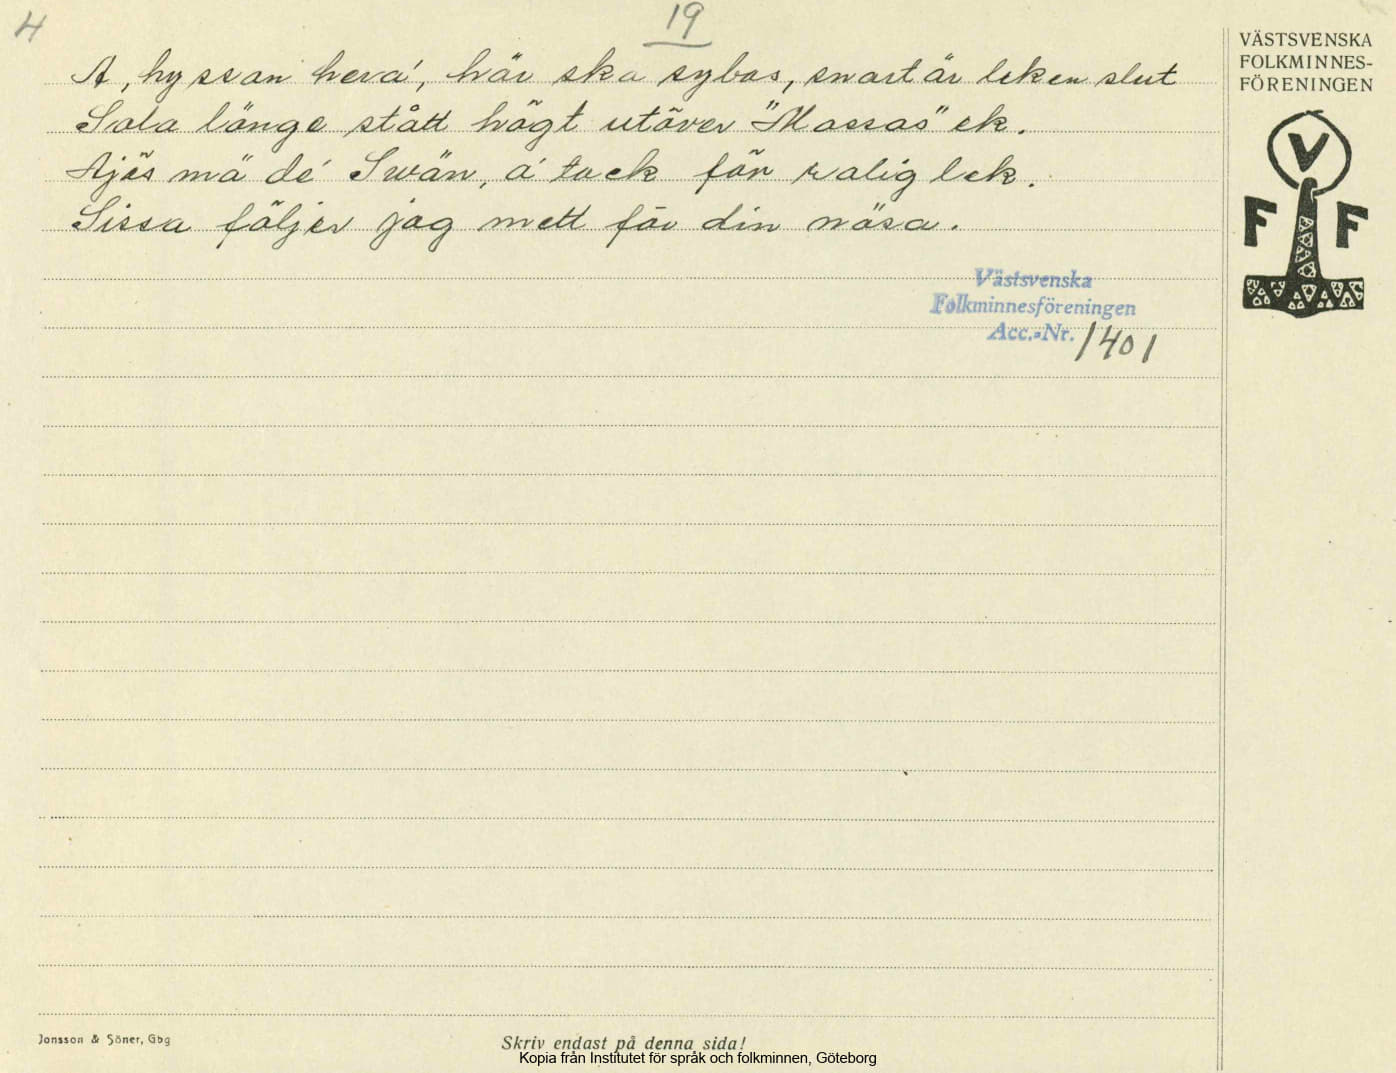 4
19
A, hyssan hevá, här ska sybas, snart är leken slut
Sola länge stått högt utöver "Massas" ek.
Ajös mä dé Swän, á tack för ralig lek.
Sissa följer jag mett för din näsa.
VÄSTSVENSKA
FOLKMINNES-
FÖRENINGEN
V
F F
Västsvenska
Folkminnesföreningen
Acc.-Nr. 1401
Jonsson & Söner, Gbg
Skriv endast på denna sida!
Kopia från Institutet för språk och folkminnen, Göteborg